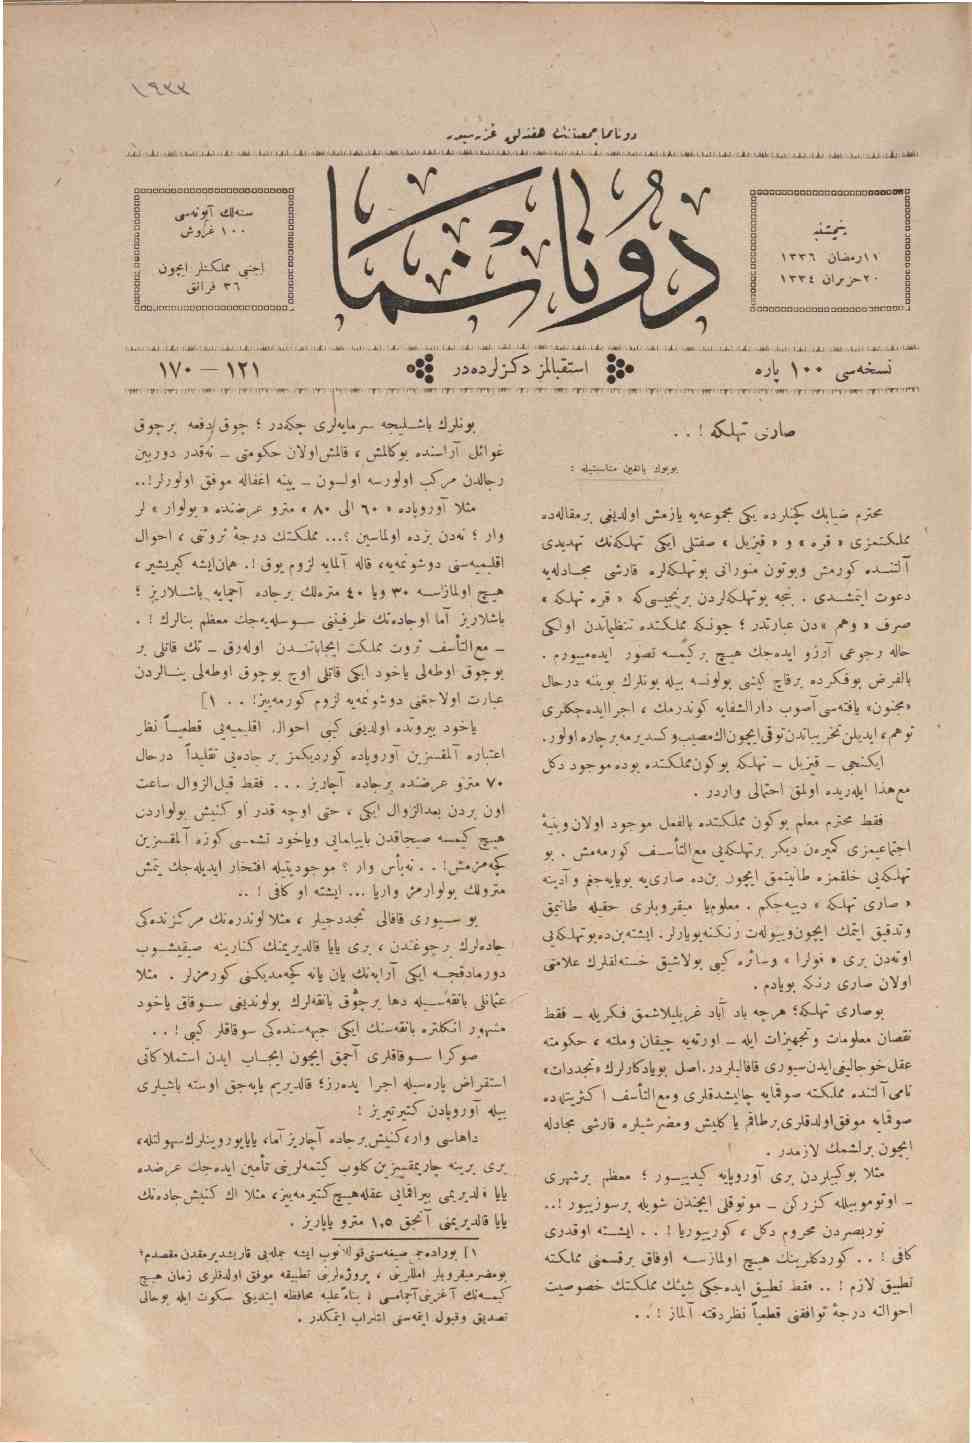 ١٩٣٣
دونانما جمعیتنك هفته‌لق غزته‌سیدر
پنجشنبه
١١ رمضان ١٣٣٦
٢٠ حزیران ١٣٣٤
دونانما
سنه‌لك آبونه‌سی
١٠٠ غروش
اجنبی مملكتلر ایچون
٣٦ فرانق
نسخه‌سی ١٠٠ پاره
استقبالمز دكزلرده‌در
١٢١ — ١٧٠
صاری تهلكه ! . .
بویوك یانغین مناسبتیله :
محترم ضیابك كچنلرده یكی مجموعه‌یه یازمش اولدیغی برمقاله‌ده
مملكتمزی « قره » و « قیزیل » صفتلی ایكی تهلكه‌نك تهدیدی
آلتنده كورمش وبوتون منورانی بوتهلكه‌لره قارشی مجادله‌یه
دعوت ایتمشدی . بنجه بوتهلكه‌لردن برنجیسی‌كه « قره تهلكه »
صرف « وهم » دن عبارتدر ؛ چونكه مملكتده تنظیماتدن اولكی
حاله رجوعی آرزو ایده‌جك هیچ بركیمسه تصور ایده‌میورم .
بالفرض بوفكرده برقاچ كیشی بولونسه بیله بونلرك بویننه درحال
«مجنون» یافته‌سی آصوب دارالشفایه كوندرمك ، اجرا ایده‌جكلری
توهم ، ایدیلن تخریباتدن توقی ایچون اك مصیب و كسدیرمه برچاره اولور.
ایكنجی – قیزیل – تهلكه بوكون مملكتده بوده موجود دكل
مع‌هذا ایله‌ریده اولمق احتمالی واردر .
فقط محترم معلم بوكون مملكتده بالفعل موجود اولان وبنیهٔ
اجتماعیمزی كمیرەن دیكر برتهلكه‌یی مع‌التأسف كورمه‌مش . بو
تهلكه‌یی خلقمزه طانیتمق ایچون بن‌ده صاری‌یه بویایه‌جغم و آدینه
« صاری تهلكه » دییه‌جكم . معلوم‌یا میقروبلری حقیله طانیمق
وتدقیق ایتمك ایچون وسهولت رنكنه بویارلر. ایشته بن‌ده بوتهلكه‌یی
اونه‌دن بری « قولرا » وسائره كبی بولاشیق خسته‌لقلرك علامتی
اولان صاری رنكه بویادم .
بوصاری تهلكه؛ هرچه باد آباد غربلیلاشمق فكریله – فقط
نقصان معلومات وتجهیزات ایله – اورته‌یه چیقان وملته ، حكومته
عقل خوجالیغی ایدن سیوری قافالیلردر. اصل بویادكارلرك «تجددات»
نامی آلتنده مملكته صوقمایه چالیشدقلری ومع‌التأسف اكثریتله‌ده
صوقمایه موفق اولدقلری برطاقم یا كلیش ومضر شیلره قارشی مجادله
ایچون براشمك لازمدر .
مثلا بوكیبلردن بری آوروپایه كیدییور ؛ معظم برشهری
– اوتوموبیلله كزركن – مونوقلی ایچندن شویله برسوزییور !..
نوربصردن محروم دكل ، كورییوریا ! . . ایشته اوقدری
كافی ! . . كوردكلرینك هیچ اولمازسه اوفاق برقسمنی مملكته
تطبیق لازم ! .. فقط تطبیق ایده‌جكی شیئك مملكتك خصوصیت
احوالنه درجهٔ توافقنی قطعیاً نظردقته آلماز ! . .
بونلرك باشلیجه سرمایه‌لری چكه‌در ؛ چوق دفعه برچوق
غوائل آراسنده بوكالمش ، قالمش اولان حكومتی – نه‌قدر دوربین
رجالدن مركب اولورسه اولسون – یینه اغفاله موفق اولورلر!..
مثلا آوروپاده « ٦٠ الی ٨٠ » مترو عرضنده « بولوار » لر
وار ؛ نه‌دن بزده اولماسین ؟... مملكتك درجهٔ ثروتنی ، احوال
اقلیمیه‌سنی دوشونمه‌یه، قاله آلمایه لزوم یوق !. همان ایشه كیریشیر ،
هیچ اولمازسه ٣٠ ویا ٤٠ متره‌لك برجاده آچمایه باشلاریز ؛
باشلاریز آما اوجاده‌نك طرفینی سوسله‌یه‌جك معظم بنالرك ! .
– مع‌التأسف ثروت مملكت ایجاباتندن اوله‌رق – تك قاتلی بر
بوچوق اوطه‌لی یاخود ایكی قاتلی اوچ بوچوق اوطه‌لی بنالردن
عبارت اولاجغنی دوشونمه‌یه لزوم كورمه‌ییز! . . ١]
یاخود بیروتده اولدیغی كبی احوال اقلیمیه‌یی قطعیاً نظر
اعتباره آلمقسزین آوروپاده كوردیكمز بر جاده‌یی تقلیداً درحال
٧٠ مترو عرضنده برجاده آچاریز . . . فقط قبل‌الزوال ساعت
اون بردن بعدالزوال ایكی ، حتی اوچه قدر او كنیش بولواردن
هیچ كیمسه صیجاقدن بایلمایی ویاخود كونه‌ش چارپمه‌سنی كوزه آلمقسزین
كچه‌مزمش! . . نه‌بأس وار ؟ موجودیتیله افتخار ایدیله‌جك یتمش
مترولك بولوارمز واریا ... ایشته او كافی ! ..
بو سیوری قافالی تجددجیلر ، مثلا لوندره‌نك مركزنده‌كی
جاده‌لرك برچوغندن ، بری یایا قالدیریمنك كنارینه صیقیشوب
دورمادقجه ایكی آرابه‌نك یان یانه كچه‌مدیكنی كورمزلر . مثلا
عثمانلی بانقه‌سیله دها برچوق بانقه‌لرك بولوندیغی سوقاق یاخود
مشهور انكلتره بانقه‌سنك ایكی جبهه‌سنده‌كی سوقاقلر كبی ! . .
صوكرا سوقاقلری آچمق ایچون ایجاب ایدن استملاكاتی
استقراض پاره‌سیله اجرا ایدەرز؛ قالدیریم یاپه‌جق اوسته باشیلری
بیله آوروپادن كتیرتیریز !
داهاسی وار، كنیش برجاده آچاریز آما، یایایوروینلرك سهولتله،
بری برینه چارپمقسزین كلوب كتمه‌لرینی تأمین ایده‌جك عرضده
یایا قالدیریمی بیراقمایی عقله هیچ كتیرمه‌ییز، مثلا اك كنیش جاده‌نك
یایا قالدیریمنی آنجق ١،٥ مترو یاپاریز .
١] بوراده جمع صیغه‌سنی قوللانوب ایشه جمله‌یی قاریشدیرمقدن مقصدم؛
بومضر میقروبلر امللرینی ، پروژه‌لرینی تطبیقه موفق اولدقلری زمان هیچ
كیمسه‌نك آغزینی آچمامسی ، بناءً علیه محافظه ایتدیكی سكوت ایله بوحالی
تصدیق وقبول ایتمه‌سنی اشراب ایتمكدر .